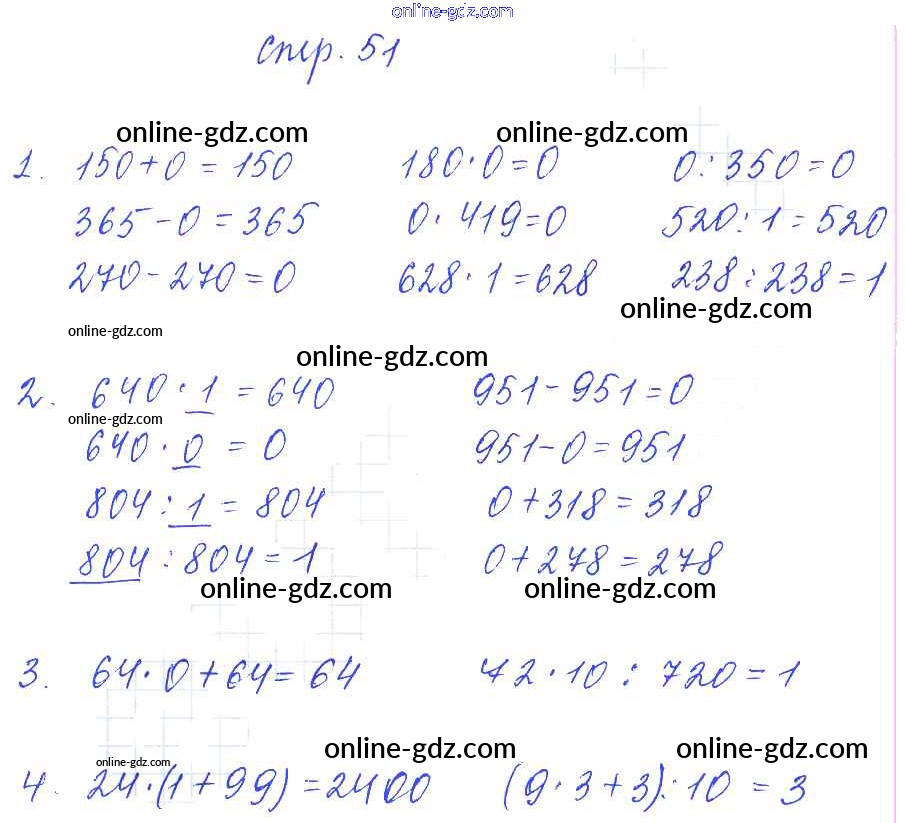 online-gdz.com
стр. 51
online-gdz.com online-gdz.com
1. 150+0=150 180·0=0 0:350=0
365-0=365 0·419=0 520:1=520
270-270=0 628·1=628 238:238=1
online-gdz.com
online-gdz.com
online-gdz.com
2. 640·1=640 951-951=0
online-gdz.com
640·0=0 951-0=951
804:1=804 0+318=318
804:804=1 0+278=278
online-gdz.com online-gdz.com
3. 64·0+64=64 72·10:720=1
online-gdz.com online-gdz.com
online-gdz.com
4. 24·(1+99)=2400 (9·3+3):10=3